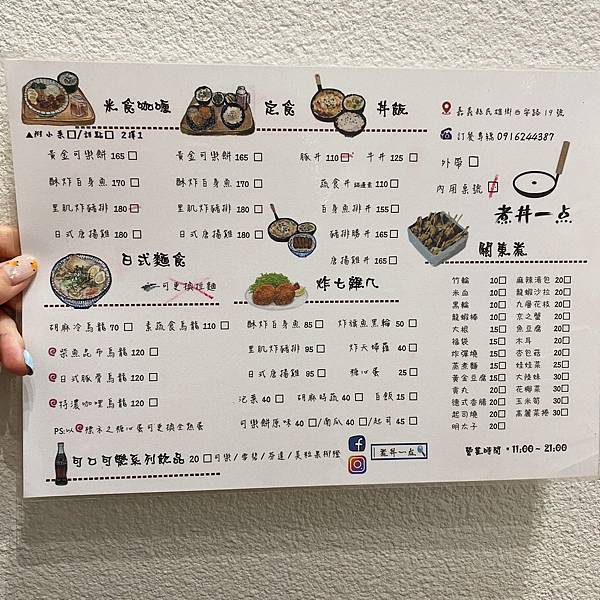 米食咖喱
▲附小菜□/甜點□ 2擇1
黃金可樂餅 165 □
酥炸白身魚 170 □
里肌炸豬排 180 □
日式唐揚雞 180 □
定食
黃金可樂餅 165 □
酥炸白身魚 170 □
里肌炸豬排 180 □
日式唐揚雞 180 □
丼飯
豚丼 110 □ 牛丼 125 □
蔬食丼 鍋邊素 110 □
白身魚排丼 155 □
豬排勝丼 165 □
唐揚雞丼 165 □
嘉義縣民雄鄉西安路19號
訂餐專線 0916244387
外帶 □
內用桌號 □
煮丼一点
日式麵食
可更換拉麵
胡麻冷烏龍 70 □ 素蔬食烏龍 110 □
@柴魚昆布烏龍 120 □
@日式豚骨烏龍 120 □
@特濃咖哩烏龍 120 □
PS:以@標示之糖心蛋可更換全熟蛋
炸七雜八
酥炸白身魚 85 □ 炸旗魚黑輪 50 □
里肌炸豬排 95 □ 炸天婦羅 40 □
日式唐揚雞 95 □ 糖心蛋 25 □
泡菜 40 □ 胡麻時蔬 40 □ 白飯 15 □
可樂餅原味 40 □/南瓜 40 □/起司 45 □
關東煮
竹輪 10□
米血 10□
黑輪 10□
龍蝦棒 20□
大根 15□
福袋 15□
炸彈燒 15□
蒸煮麵 15□
黃金豆腐 15□
貢丸 20□
德式香腸 20□
起司燒 20□
明太子 20□
麻辣湯包 20□
龍蝦沙拉 20□
九層花枝 20□
京之蟹 20□
魚豆腐 20□
木耳 20□
杏包菇 20□
娃娃菜 25□
大陸妹 30□
花椰菜 30□
玉米筍 30□
高麗菜捲 30□
可口可樂系列飲品 20 □可樂/雪碧/芬達/美粒果柳橙
煮丼一点
營業時間。11:00~21:00